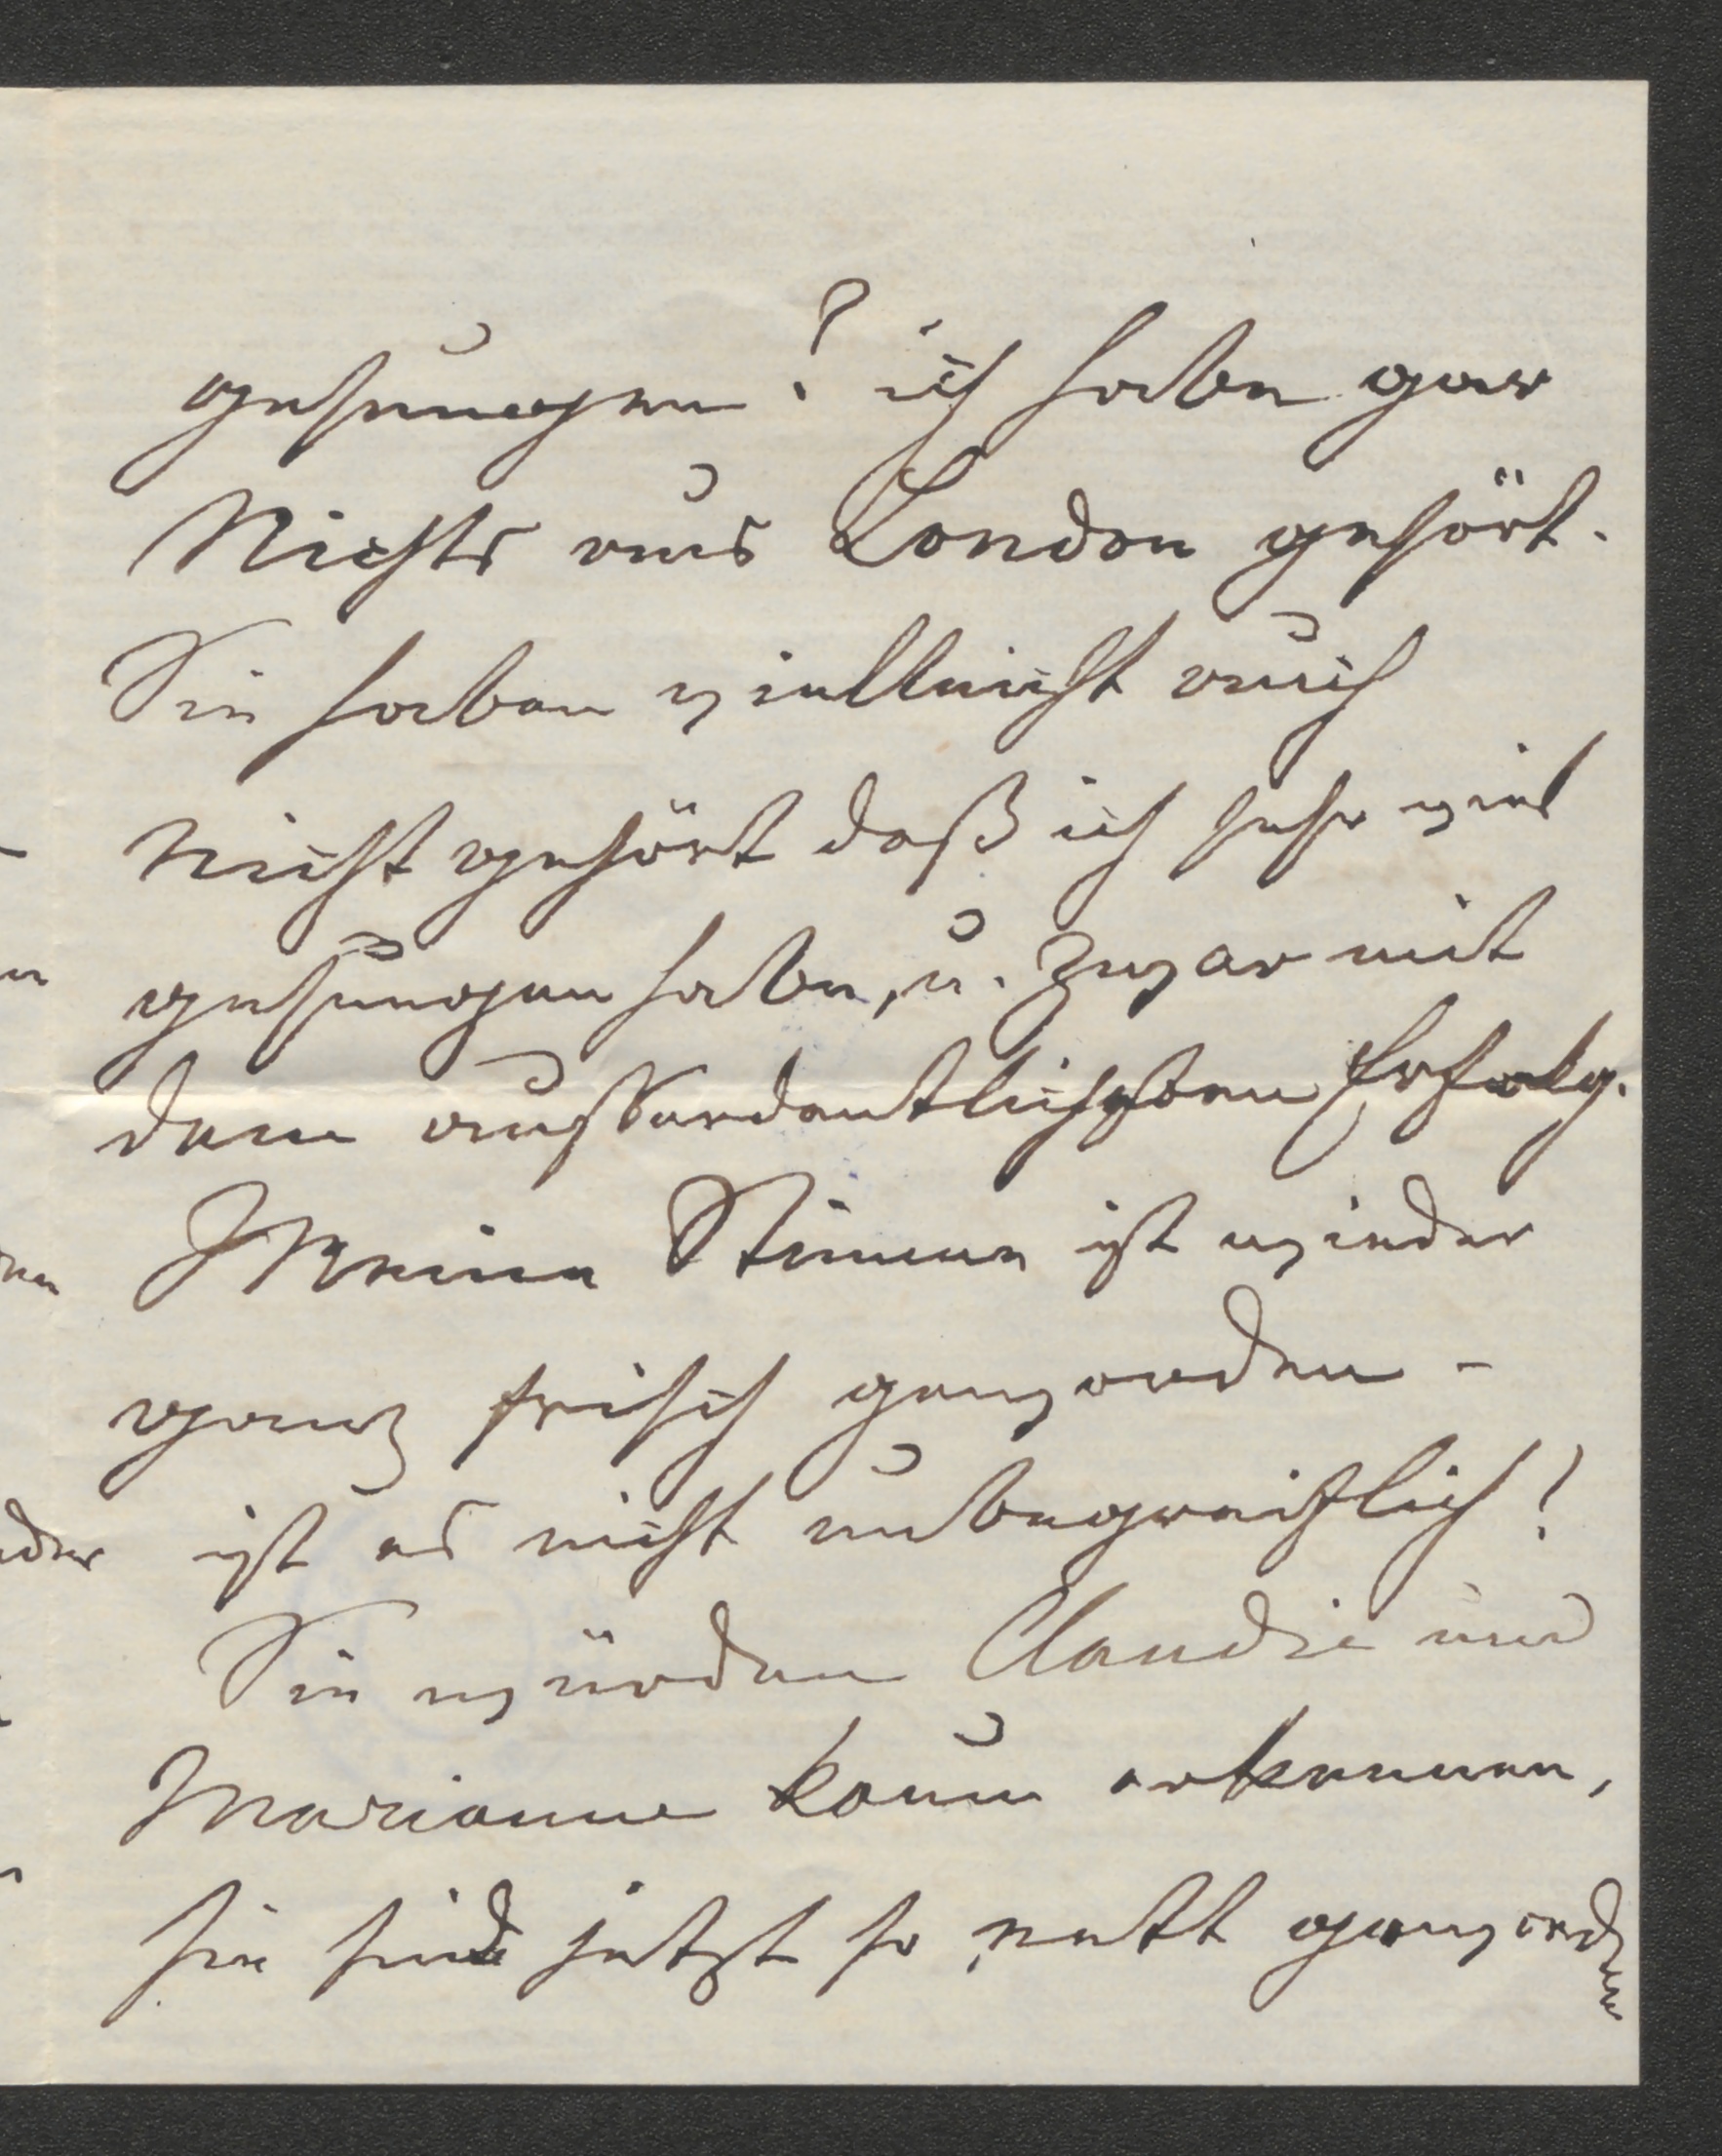 gesungen? ich habe gar
Nichts aus London gehört.
Sie haben vielleicht auch
nicht gehört daß ich sehr viel
gesungen habe, u. zwar mit
dem aussordentlichsten Erfolg.
Meine Stimme ist wieder
ganz frisch geworden –
ist es nicht unbegreiflich!
Sie würden Claudie und
Marianne kaum erkennen,
sie sind jetzt so nett geworden